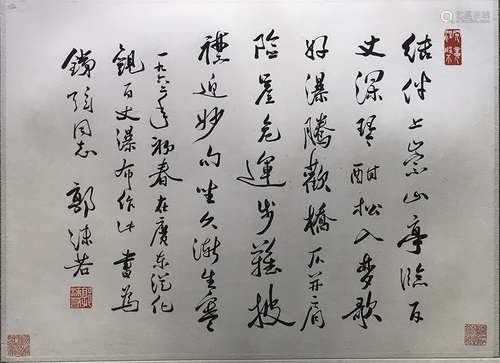 结伴上崇山亭临百
丈深琴酣松入梦歌
好瀑腾歡橋仄并肩
险崖危運步難披
襟迎妙句坐久漸生寒
一九六二年初春在廣东從化
觀百丈瀑布作此書為
同志 郭沫若